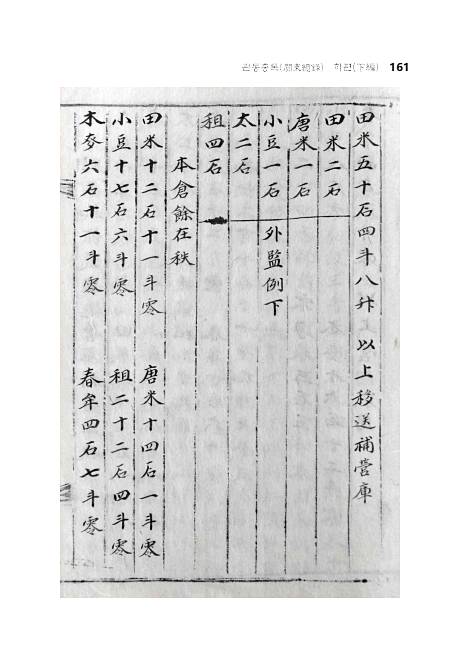 관동총록(關東總錄) 하편(下編) 161
田米五十石四斗八升 以上移送補營庫
田米二石
唐米一石
小豆一石 外監例下
太二石
租四石
本倉餘在秩
田米十二石十一斗零 唐米十四石一斗零
小豆十七石六斗零 租二十二石四斗零
木麥六石十一斗零 春牟四石七斗零